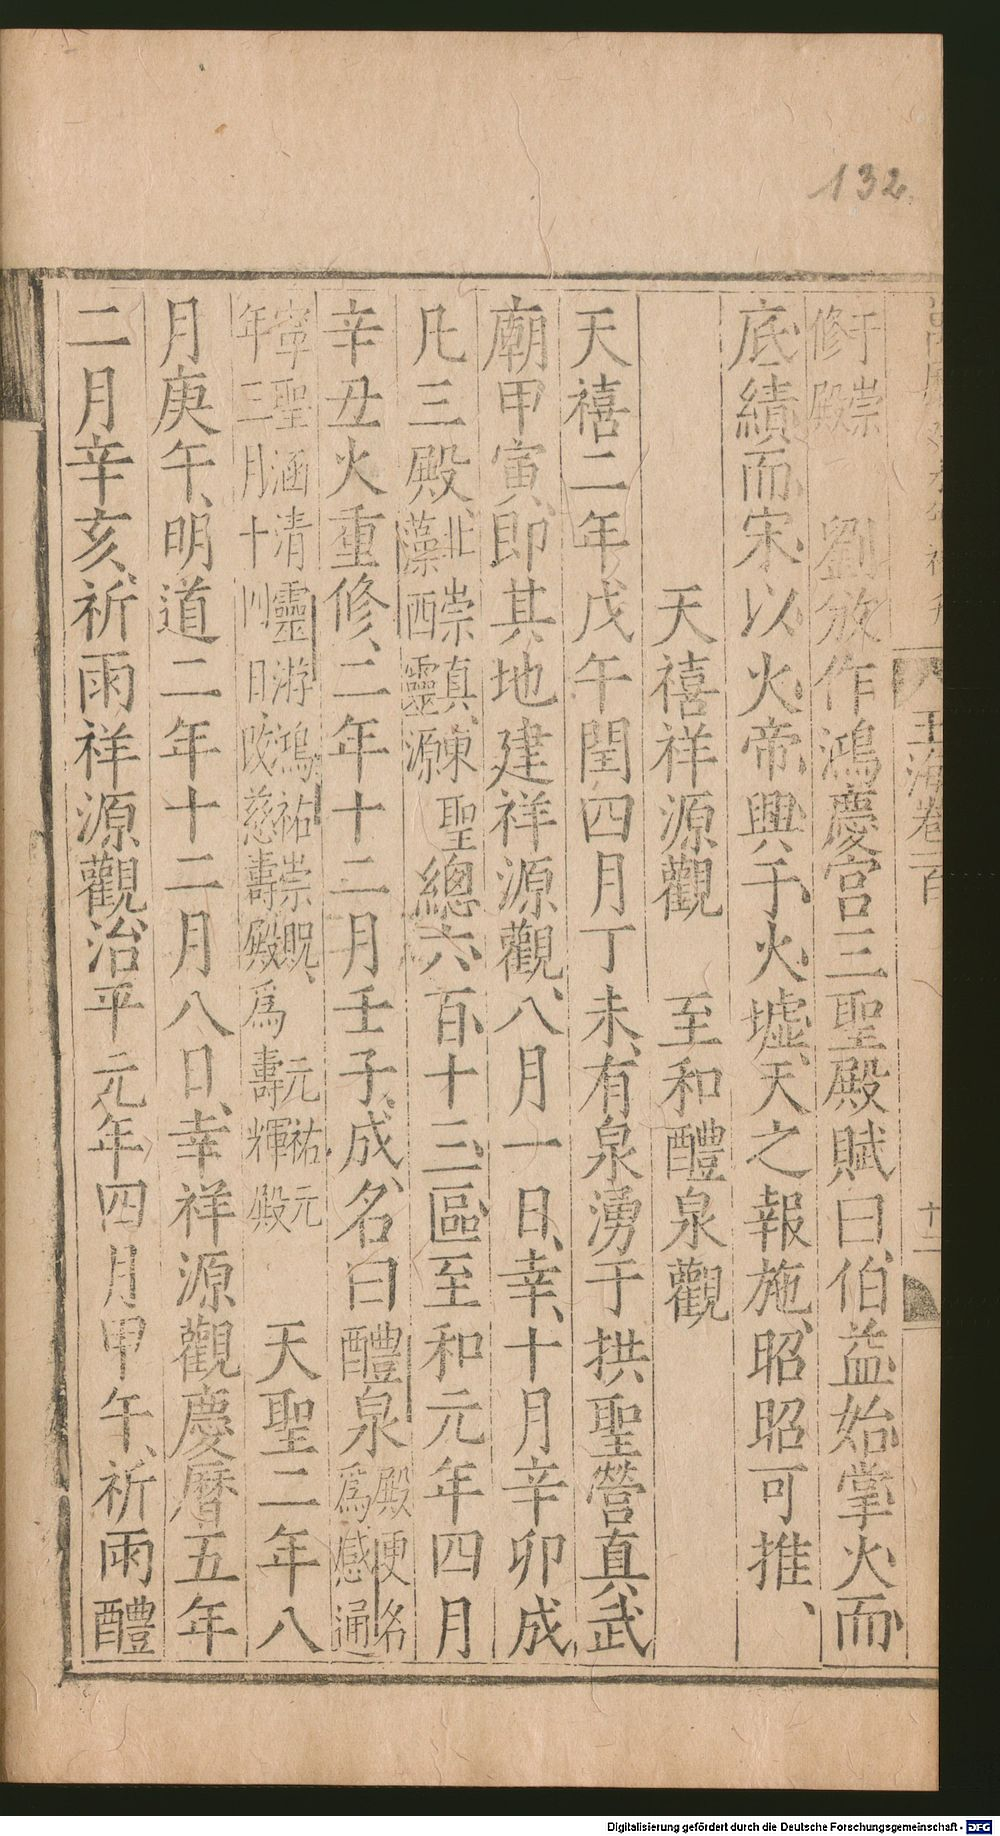 132
玉海卷一百
十二
于崇
修殿
劉攽作鴻慶宮三聖殿賦曰伯益始掌火而
底績而宋以火帝興于火墟天之報施昭昭可推、
天禧祥源觀 至和醴泉觀
天禧二年戊午閏四月丁未、有泉湧于拱聖營真武
廟甲寅、即其地建祥源觀、八月一日、幸、十月辛卯成
凡三殿、
北崇真、東聖
藻西靈源
總六百十三區至和元年四月
辛丑火重修、二年十二月壬子、成、名曰醴泉
殿更名
爲感通
寧聖涵清靈游鴻祐崇貺、元祐元
年三月十
日改慈壽殿爲壽輝殿
天聖二年八
月庚午、明道二年十二月八日、幸祥源觀慶曆五年
二月辛亥、祈雨祥源觀治平元年四月甲午、祈雨醴
Digitalisierung gefördert durch die Deutsche Forschungsgemeinschaft - DFG